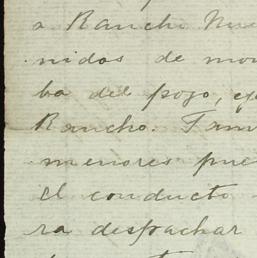 a Rancho Nue
nidos de mon
ba del pozo, eje
Rancho. Tam
menores pue
el conducto
ra despachar